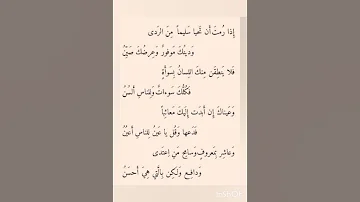 إِذَا رُمتَ أَن تَحيا سَليماً مِنَ الرَدى
وَدينُكَ مَوفورٌ وَعِرضُكَ صَيِّنُ
فَلا يَنطِقَن مِنكَ اللِسانُ بِسَوأَةٍ
فَكُلُّكَ سَوءاتٌ وَلِلناسِ أَلسُنُ
وَعَيناكَ إِن أَبدَت إِلَيكَ مَعائِباً
فَدَعها وَقُل يا عَينُ لِلناسِ أَعيُنُ
وَعاشِر بِمَعروفٍ وَسامِح مَنِ اِعتَدى
وَدافِع وَلَكِن بِالَّتي هِيَ أَحسَنُ